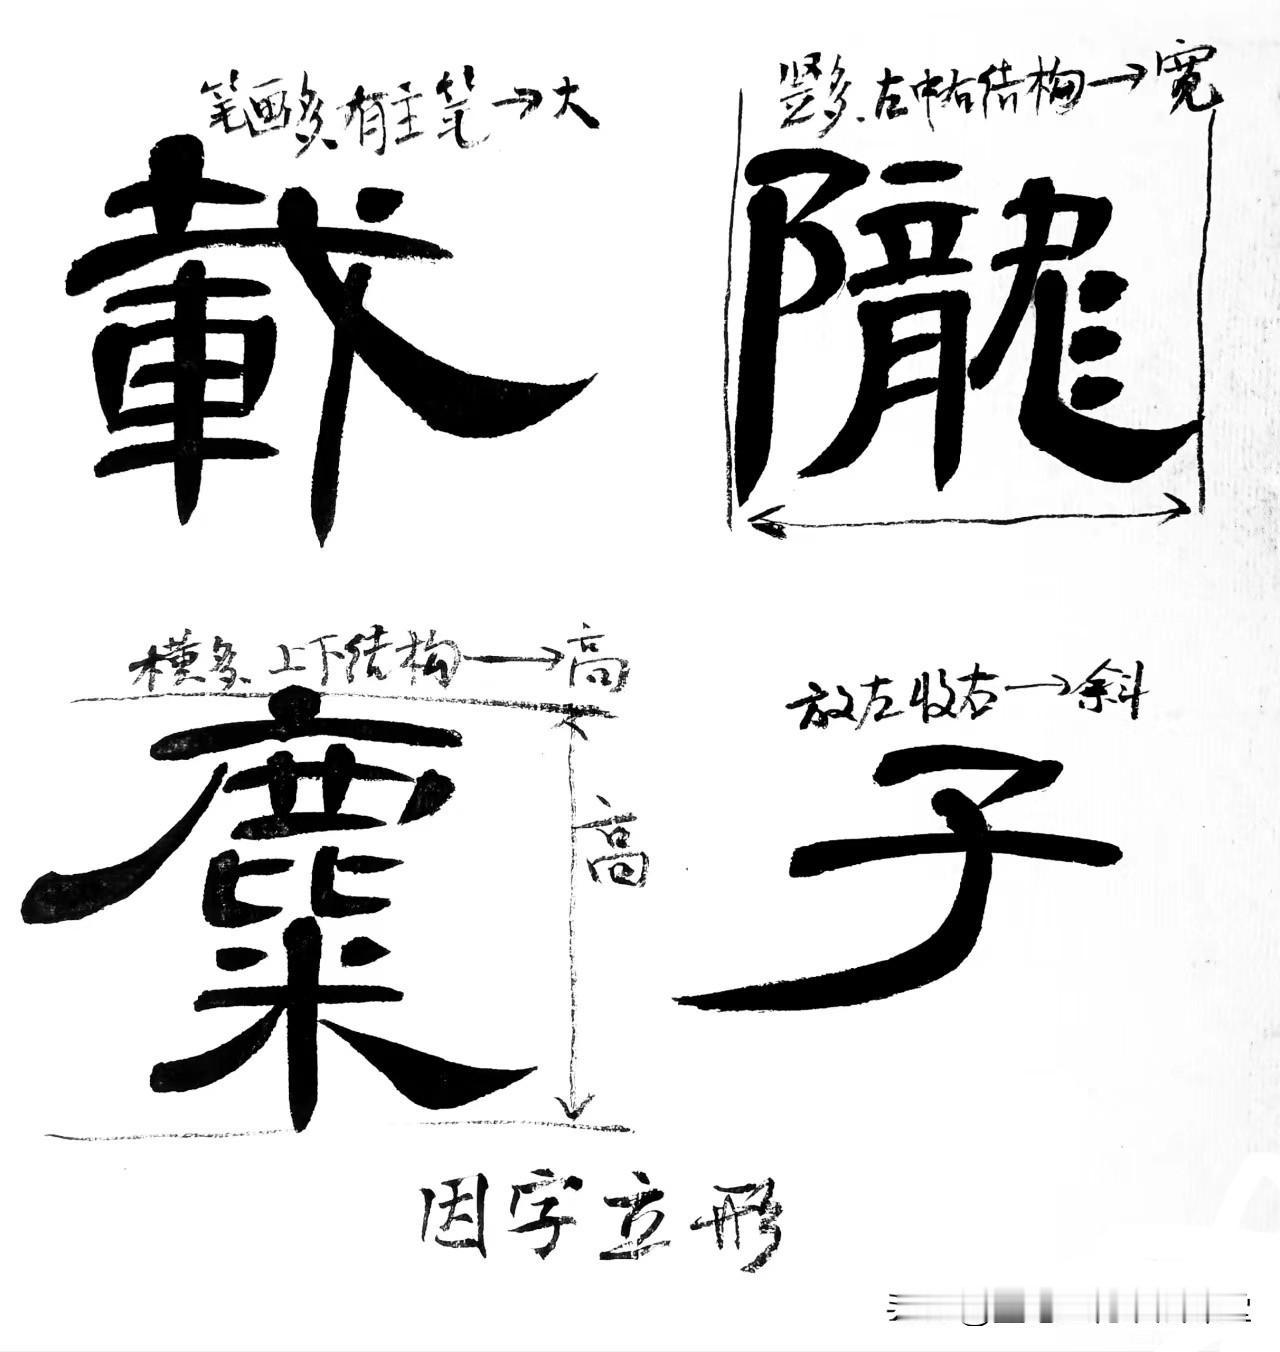 笔画多、有主笔→大
載
竖多、左中右结构→宽
隴
横多、上下结构→高
麋
高
放左收右→斜
子
因字立形